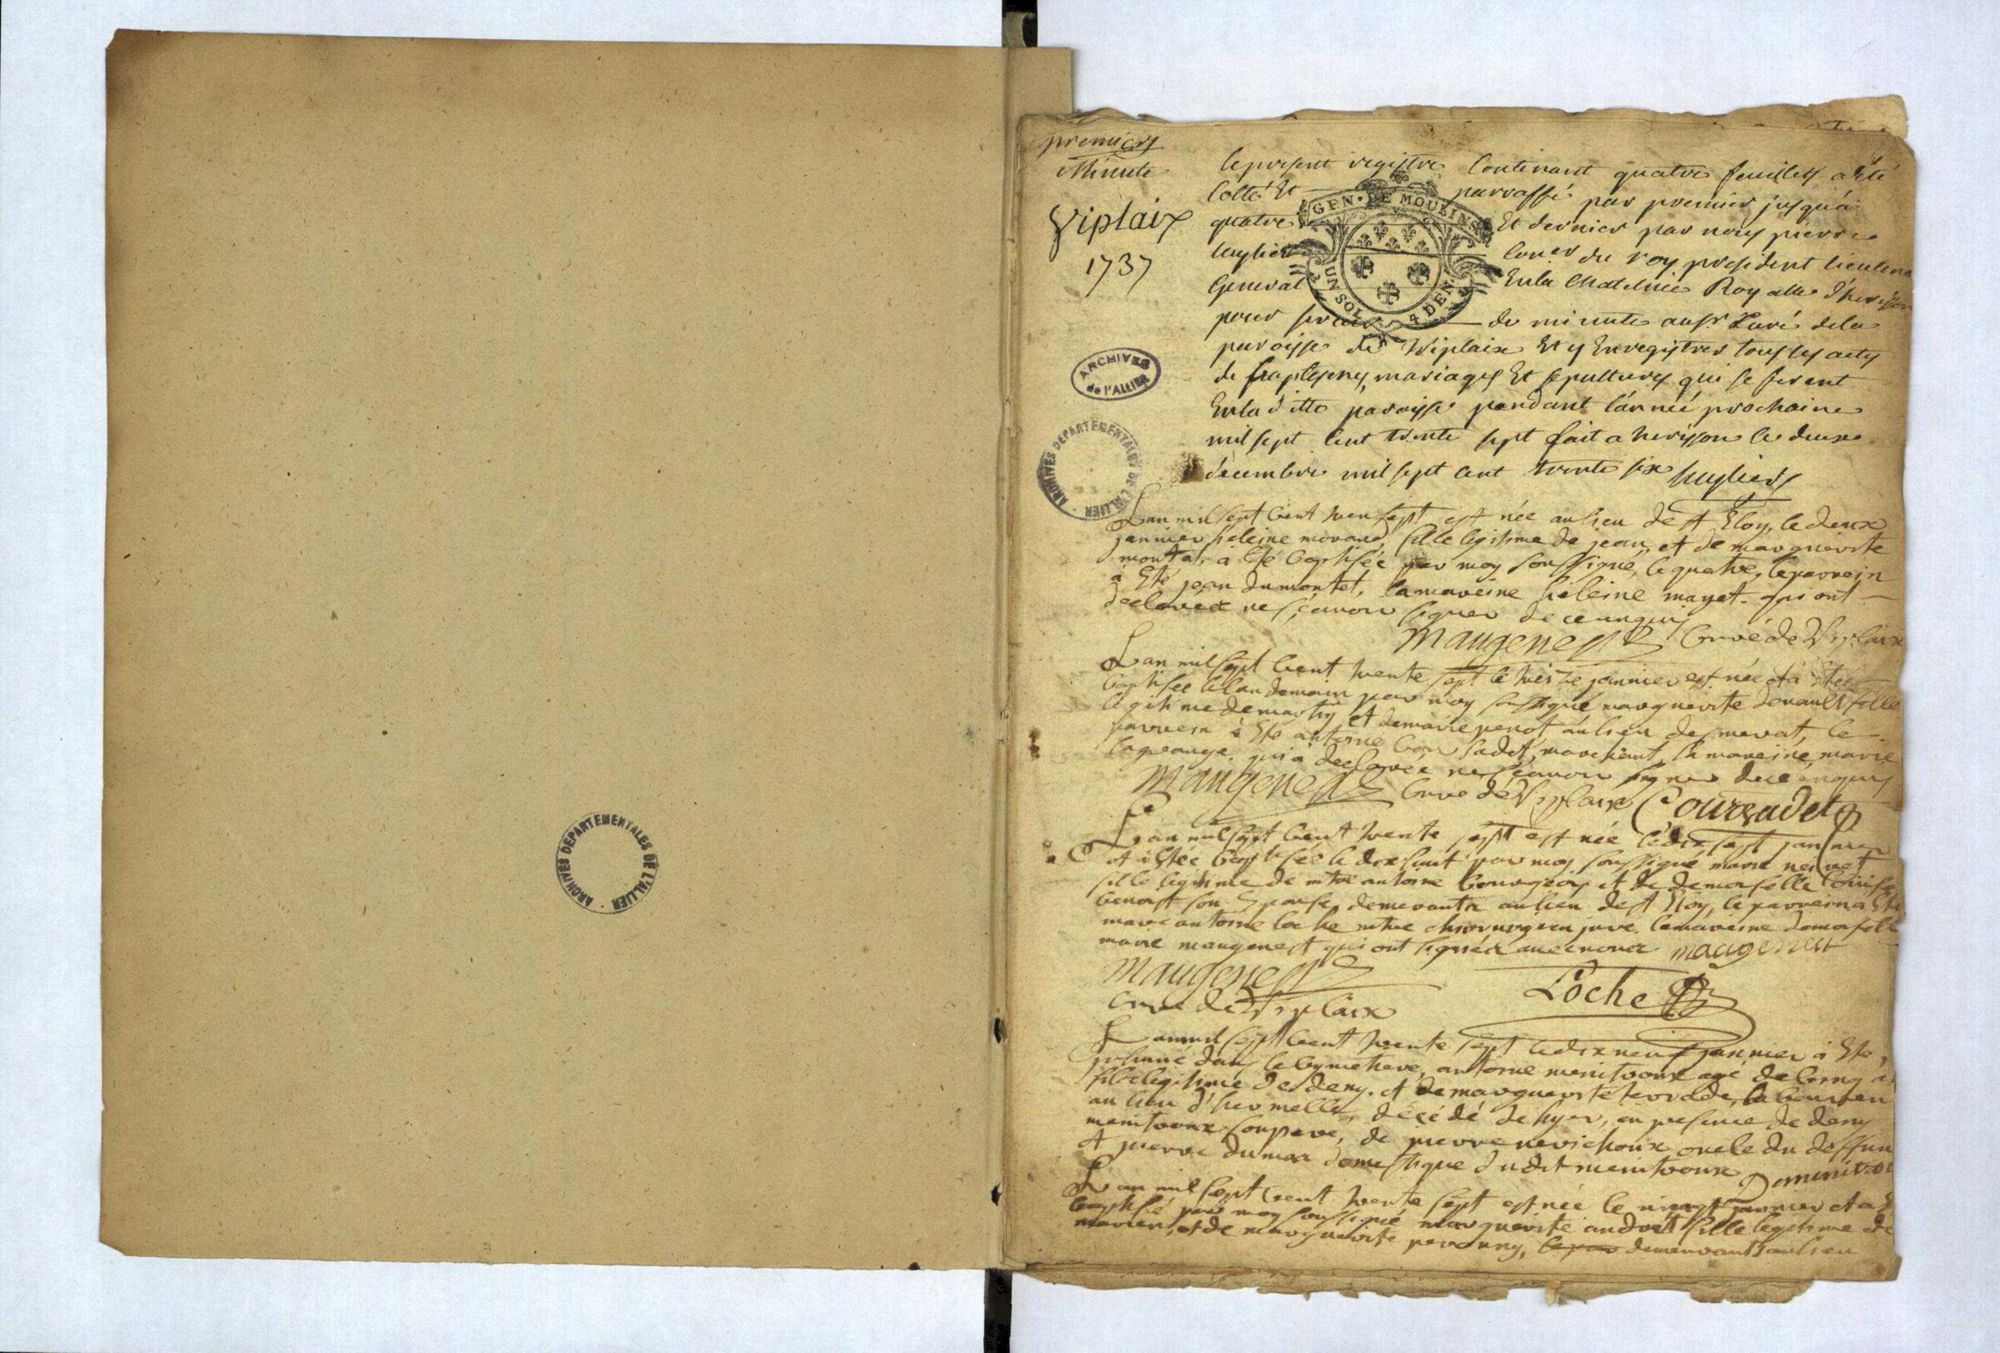 ARCHIVES DEPARTEMENTALES DE L'ALLIER
premiere
Minute
Viplaix
1737
GEN. DE MOULINS
UN SOL 4 DEN.
ARCHIVES
de l'ALLIER
ARCHIVES DEPARTEMENTALES DE L'ALLIER
le present registre Contenant quatre feuillets a été
Cotté Et parraffé par premier jusqu'a
quatre Et dernier par nous pierre
huylier Coner du roy president lieutenant
General En la Chatelnie Royalle d'herisson
pour servir de minute au sr Curé de la
paroisse de Viplaix Et y Enregistrer tous les actes
de baptesmes, mariages Et sepultures qui se feront
En la ditte paroisse pendant l'année prochaine
mil sept Cent trente sept fait a herisson le deux
decembre mil sept cent trente six huylier
L'an mil sept Cent trente sept est née au lieu de st Eloy, le deux
janvier heleine morand fille legitime de jean, et de marguerite
montat, à été baptisée par moy soussigné, le quatre, le parrein
à Eté jean dumontet, la mareine héleine mayet. qui ont
declarer ne sçavoir signer de ce enquis
Maugenest Curé de Viplaix
L'an mil sept Cent trente sept le treize janvier est née et à Eté
baptisée le landemain par moy soussigné marguerite fille
legitime de martin, et de marie perot au lieu de le
parrein à Eté antoine Cour sadet, marchant, la mareine marie
lagrange. qui a declarée ne sçavoir signer de ce enquis
Maugenest Curé de Viplaix Coursadet
L'an mil sept Cent trente sept est née le dix sept janvier
et à Etée baptisée le dix huit par moy soussigné marie
fille legitime de mtre antoine bourgeois et de demoiselle louise
benoist son Epouse demeurants au lieu de st Eloy, le parrein a Eté
marc antoine loche mtre chirurgien juré, la mareine demoiselle
marie maugenest qui ont signée avec nous maugenest
Maugenest Loche
Curé de Viplaix
L'an mil sept Cent trente sept le dix neuf janvier à Eté,
inhumé dans le Cymetiere, antoine menitroux agé de Cinq
fils legitime de deny, et de marguerite
au lieu d'hermelle, décédé de hyer, en presence de deny
menitroux son pere, de pierre nerichoux oncle du deffun
et pierre dumas domestique dudit menitroux
L'an mil sept Cent trente sept est née le vingt janvier et a
baptisé par moy soussigné marguerite fille legitime de
et de marguerite demeurants au lieu